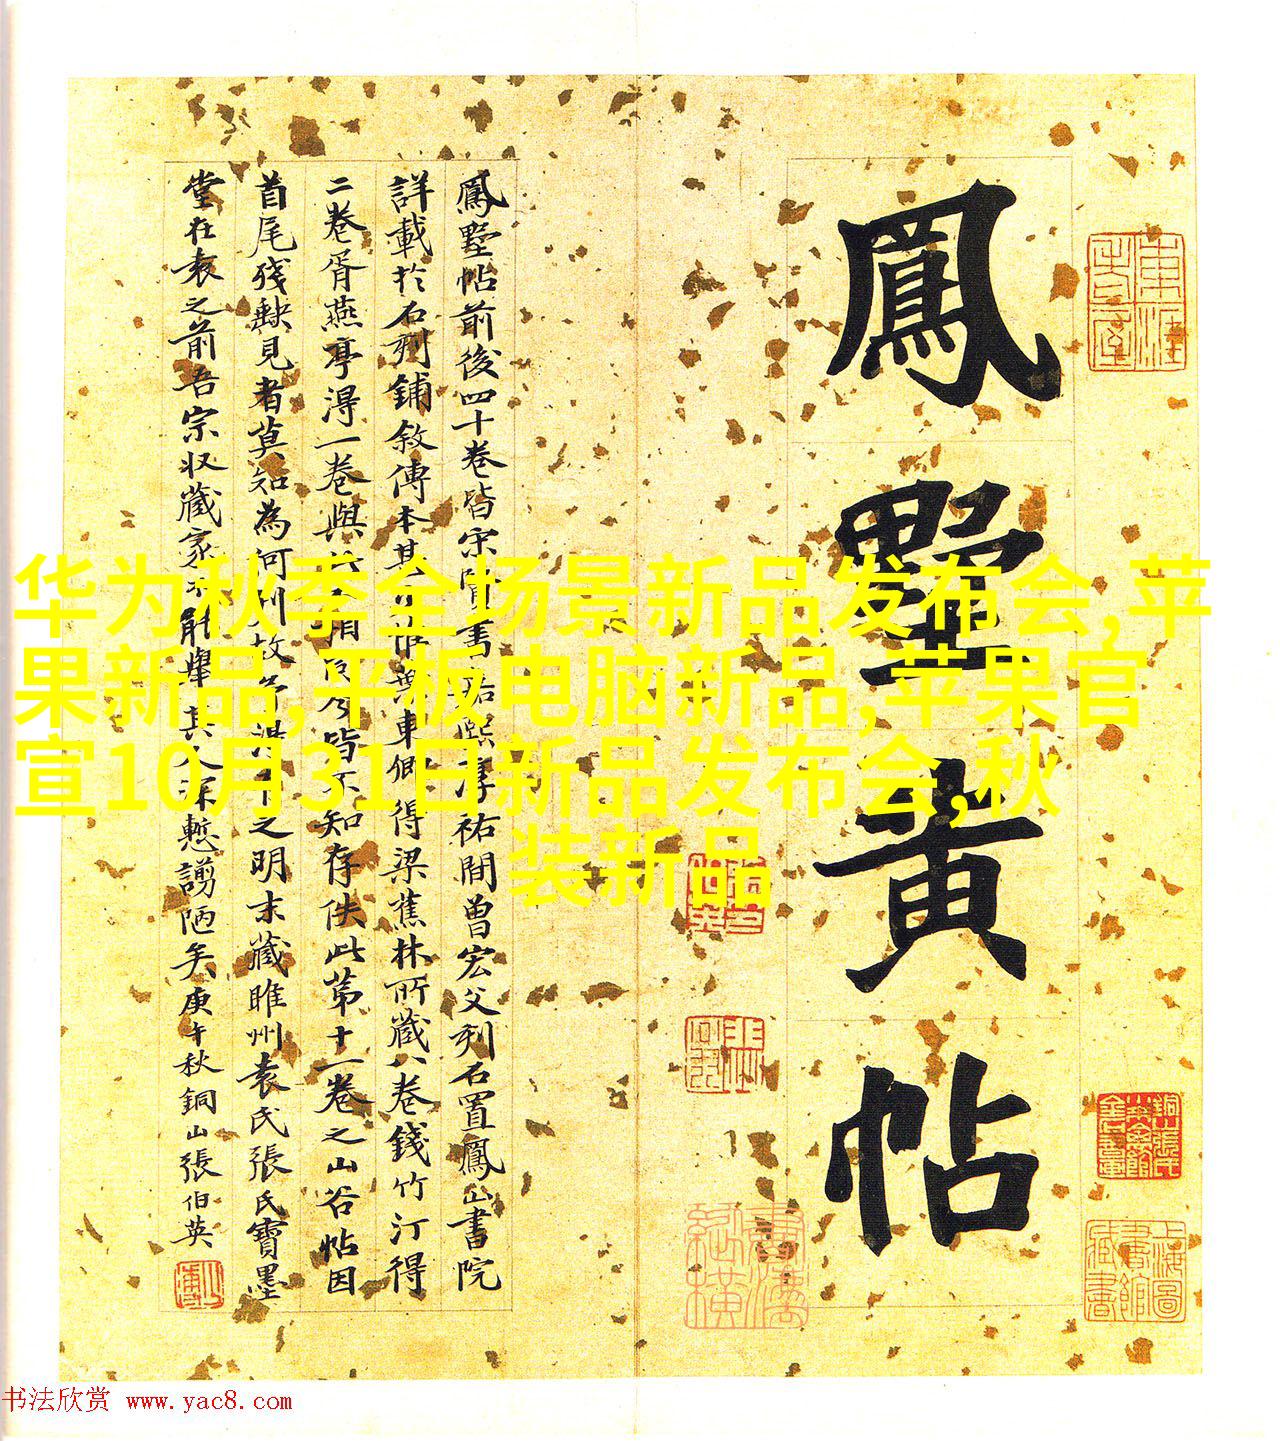 鳳墅黄帖
鳳墅帖前後四十卷皆宋賢書嘉熙淳祐間曾宏父刻石置鳳山書院
詳載於石刻鋪敘傳本甚
東卿得梁蕉林所藏八卷錢竹汀得
二卷胥燕亭得一卷與
皆不知存佚此第十一卷之山谷帖因
首尾殘缺見者莫知為何刻故
之明末藏睢州袁氏張氏寶墨
堂在袁之前吾宗収藏家不能舉其人深慙謭陋矣庚午秋銅山張伯英
华为秋季全场景新品发布会,苹
果新品,平板电脑新品,苹果官
宣10月31日新品发布会,秋
装新品
上海圖書館藏書
书法欣赏 www.yac8.com